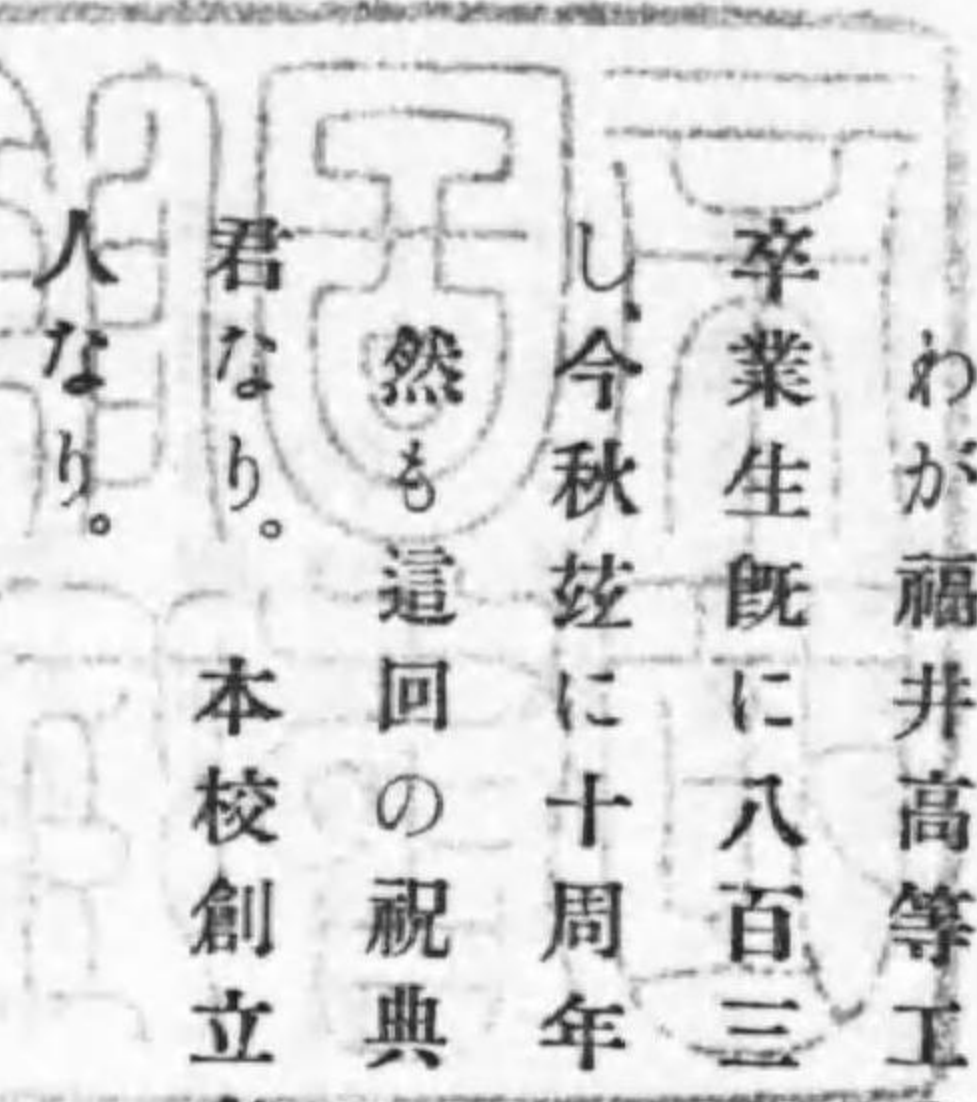 わが福井高等工
卒業生既に八百三
し、今秋茲に十周年
然も這回の祝典
君なり。 本校創立
人なり。